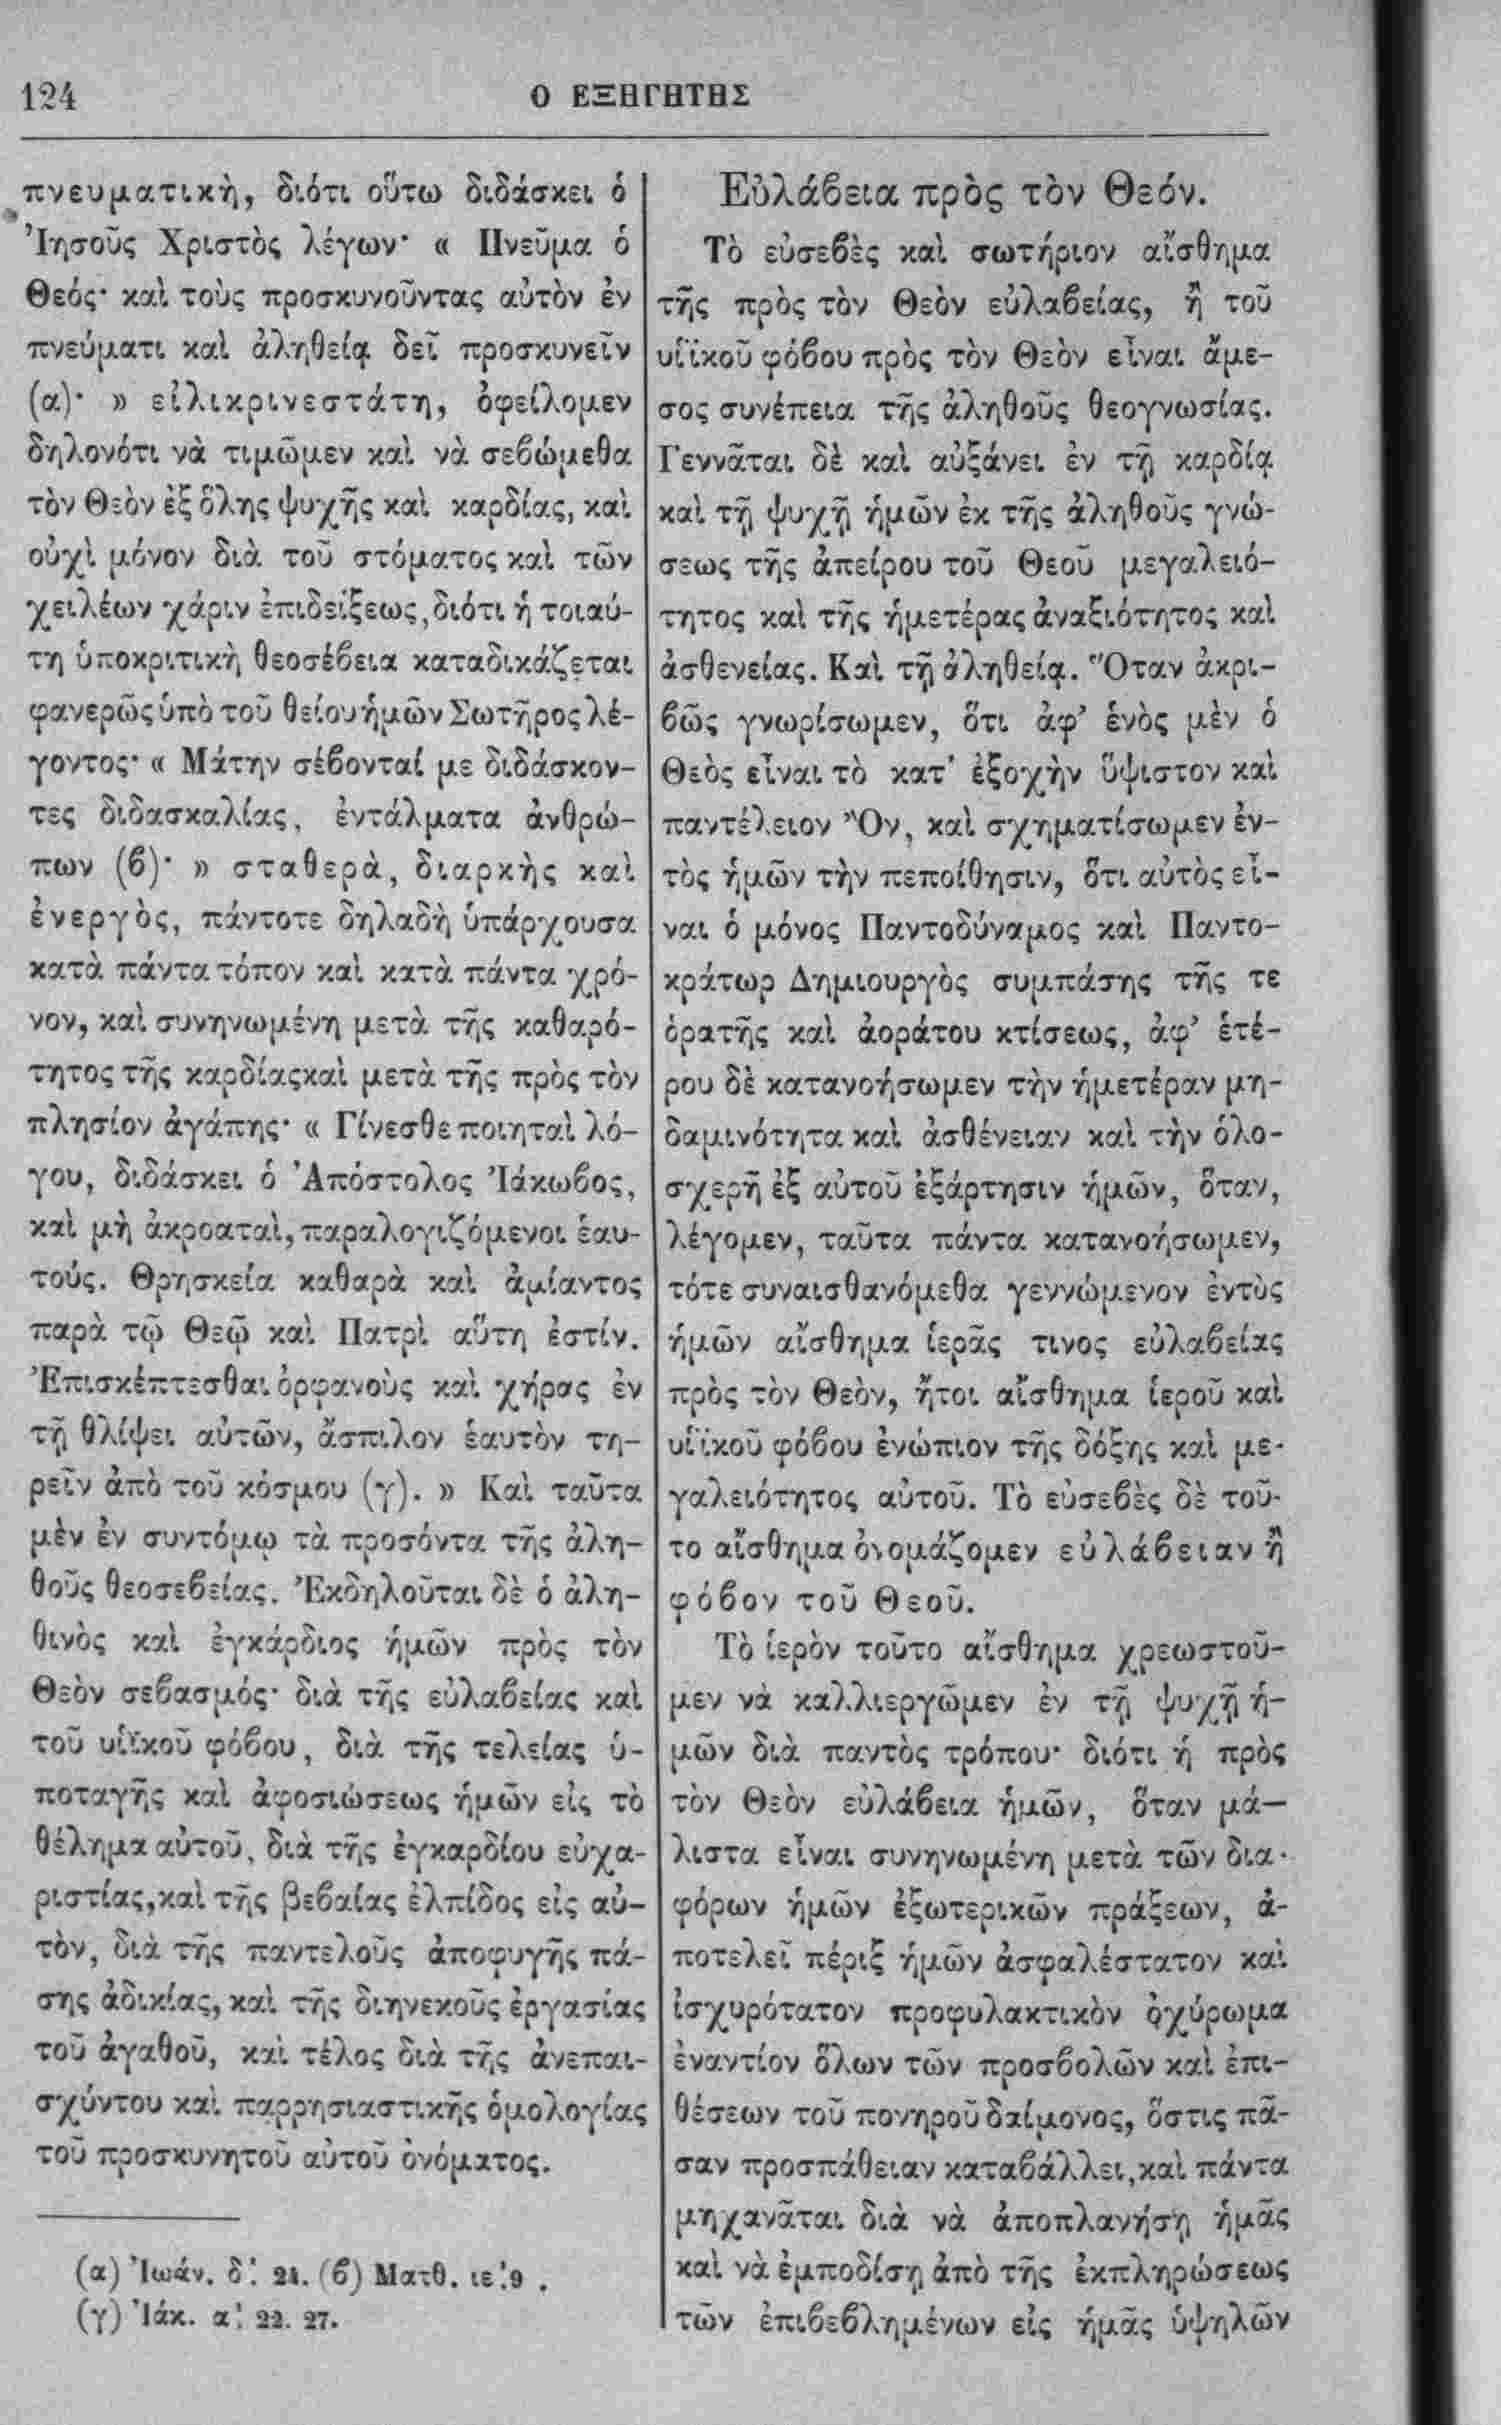 124
Ο ΕΞΗΓΗΤΗΣ
πνευματικὴ, διότι οὕτω διδάσκει ὁ
Ἰησοῦς Χριστὸς λέγων· « Πνεῦμα ὁ
Θεός· καὶ τοὺς προσκυνοῦντας αὐτὸν ἐν
πνεύματι καὶ ἀληθείᾳ δεῖ προσκυνεῖν
(α)· » εἰλικρινεστάτη, ὀφείλομεν
δηλονότι νὰ τιμῶμεν καὶ νὰ σεβώμεθα
τὸν Θεὸν ἐξ ὅλης ψυχῆς καὶ καρδίας, καὶ
οὐχὶ μόνον διὰ τοῦ στόματος καὶ τῶν
χειλέων χάριν ἐπιδείξεως, διότι ἡ τοιαύ-
τη ὑποκριτικὴ θεοσέβεια καταδικάζεται
φανερῶς ὑπὸ τοῦ θείου ἡμῶν Σωτῆρος λέ-
γοντος· « Μάτην σέβονταί με διδάσκον-
τες διδασκαλίας, ἐντάλματα ἀνθρώ-
πων (β)· » σταθερὰ, διαρκὴς καὶ
ἐνεργὸς, πάντοτε δηλαδὴ ὑπάρχουσα
κατὰ πάντα τόπον καὶ κατὰ πάντα χρό-
νον, καὶ συνηνωμένη μετὰ τῆς καθαρό-
τητος τῆς καρδίας καὶ μετὰ τῆς πρὸς τὸν
πλησίον ἀγάπης· « Γίνεσθε ποιηταὶ λό-
γου, διδάσκει ὁ Ἀπόστολος Ἰάκωβος,
καὶ μὴ ἀκροαταὶ, παραλογιζόμενοι ἑαυ-
τούς. Θρησκεία καθαρὰ καὶ ἀμίαντος
παρὰ τῷ Θεῷ καὶ Πατρὶ αὕτη ἐστίν.
Ἐπισκέπτεσθαι ὀρφανοὺς καὶ χήρας ἐν
τῇ θλίψει αὐτῶν, ἄσπιλον ἑαυτὸν τη-
ρεῖν ἀπὸ τοῦ κόσμου (γ). » Καὶ ταῦτα
μὲν ἐν συντόμῳ τὰ προσόντα τῆς ἀλη-
θοῦς θεοσεβείας. Ἐκδηλοῦται δὲ ὁ ἀλη-
θινὸς καὶ ἐγκάρδιος ἡμῶν πρὸς τὸν
Θεὸν σεβασμός· διὰ τῆς εὐλαβείας καὶ
τοῦ υἱϊκοῦ φόβου, διὰ τῆς τελείας ὑ-
ποταγῆς καὶ ἀφοσιώσεως ἡμῶν εἰς τὸ
θέλημα αὐτοῦ, διὰ τῆς ἐγκαρδίου εὐχα-
ριστίας, καὶ τῆς βεβαίας ἐλπίδος εἰς αὐ-
τὸν, διὰ τῆς παντελοῦς ἀποφυγῆς πά-
σης ἀδικίας, καὶ τῆς διηνεκοῦς ἐργασίας
τοῦ ἀγαθοῦ, καὶ τέλος διὰ τῆς ἀνεπαι-
σχύντου καὶ παρρησιαστικῆς ὁμολογίας
τοῦ προσκυνητοῦ αὐτοῦ ὀνόματος.
(α) Ἰωάν. δ΄. 24. (β) Ματθ. ιε΄. 9.
(γ) Ἰάκ. α΄. 22. 27.
Εὐλάβεια πρὸς τὸν Θεόν.
Τὸ εὐσεβὲς καὶ σωτήριον αἴσθημα
τῆς πρὸς τὸν Θεὸν εὐλαβείας, ἢ τοῦ
υἱϊκοῦ φόβου πρὸς τὸν Θεὸν εἶναι ἄμε-
σος συνέπεια τῆς ἀληθοῦς θεογνωσίας.
Γεννᾶται δὲ καὶ αὐξάνει ἐν τῇ καρδίᾳ
καὶ τῇ ψυχῇ ἡμῶν ἐκ τῆς ἀληθοῦς γνώ-
σεως τῆς ἀπείρου τοῦ Θεοῦ μεγαλειό-
τητος καὶ τῆς ἡμετέρας ἀναξιότητος καὶ
ἀσθενείας. Καὶ τῇ ἀληθείᾳ. Ὅταν ἀκρι-
βῶς γνωρίσωμεν, ὅτι ἀφ’ ἑνὸς μὲν ὁ
Θεὸς εἶναι τὸ κατ’ ἐξοχὴν ὕψιστον καὶ
παντέλειον Ὂν, καὶ σχηματίσωμεν ἐν-
τὸς ἡμῶν τὴν πεποίθησιν, ὅτι αὐτὸς εἶ-
ναι ὁ μόνος Παντοδύναμος καὶ Παντο-
κράτωρ Δημιουργὸς συμπάσης τῆς τε
ὁρατῆς καὶ ἀοράτου κτίσεως, ἀφ’ ἑτέ-
ρου δὲ κατανοήσωμεν τὴν ἡμετέραν μη-
δαμινότητα καὶ ἀσθένειαν καὶ τὴν ὁλο-
σχερῆ ἐξ αὐτοῦ ἐξάρτησιν ἡμῶν, ὅταν,
λέγομεν, ταῦτα πάντα κατανοήσωμεν,
τότε συναισθανόμεθα γεννώμενον ἐντὸς
ἡμῶν αἴσθημα ἱερᾶς τινος εὐλαβείας
πρὸς τὸν Θεὸν, ἤτοι αἴσθημα ἱεροῦ καὶ
υἱϊκοῦ φόβου ἐνώπιον τῆς δόξης καὶ με-
γαλειότητος αὐτοῦ. Τὸ εὐσεβὲς δὲ τοῦ-
το αἴσθημα ὀνομάζομεν εὐλάβειαν ἢ
φόβον τοῦ Θεοῦ.
Τὸ ἱερὸν τοῦτο αἴσθημα χρεωστοῦ-
μεν νὰ καλλιεργῶμεν ἐν τῇ ψυχῇ ἡ-
μῶν διὰ παντὸς τρόπου· διότι ἡ πρὸς
τὸν Θεὸν εὐλάβεια ἡμῶν, ὅταν μά—
λιστα εἶναι συνηνωμένη μετὰ τῶν δια-
φόρων ἡμῶν ἐξωτερικῶν πράξεων, ἀ-
ποτελεῖ πέριξ ἡμῶν ἀσφαλέστατον καὶ
ἰσχυρότατον προφυλακτικὸν ὀχύρωμα
ἐναντίον ὅλων τῶν προσβολῶν καὶ ἐπι-
θέσεων τοῦ πονηροῦ δαίμονος, ὅστις πᾶ-
σαν προσπάθειαν καταβάλλει, καὶ πάντα
μηχανᾶται διὰ νὰ ἀποπλανήσῃ ἡμᾶς
καὶ νὰ ἐμποδίσῃ ἀπὸ τῆς ἐκπληρώσεως
τῶν ἐπιβεβλημένων εἰς ἡμᾶς ὑψηλῶν